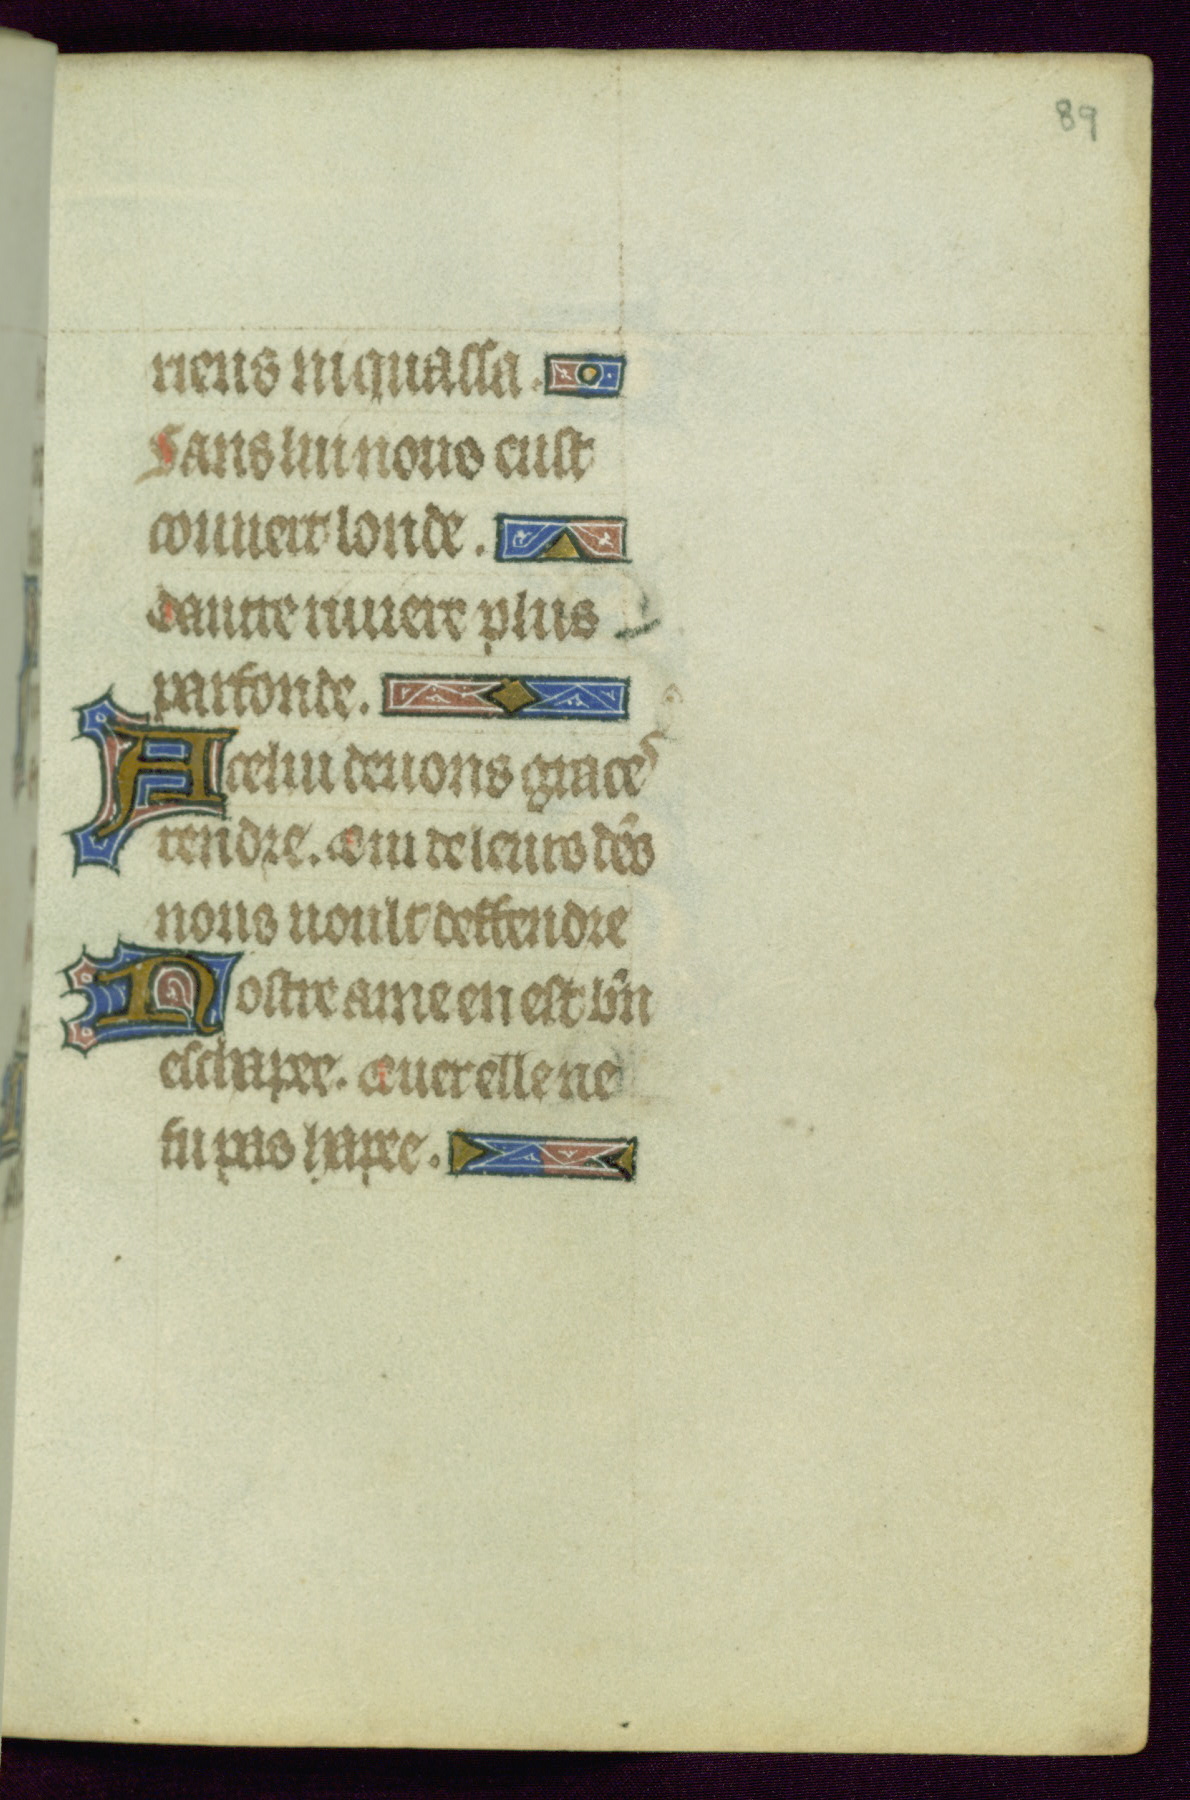 89
riens ni quassa.
Sans lui nous eust
couuert londe.
dautre riuiere plus
parfonde.
A celui deuons graces
rendre. Qui de leurs dēs
nous uoult deffendre
Nostre ame en est bn̄
eschapee. Quer elle ne
fu pas hapee.